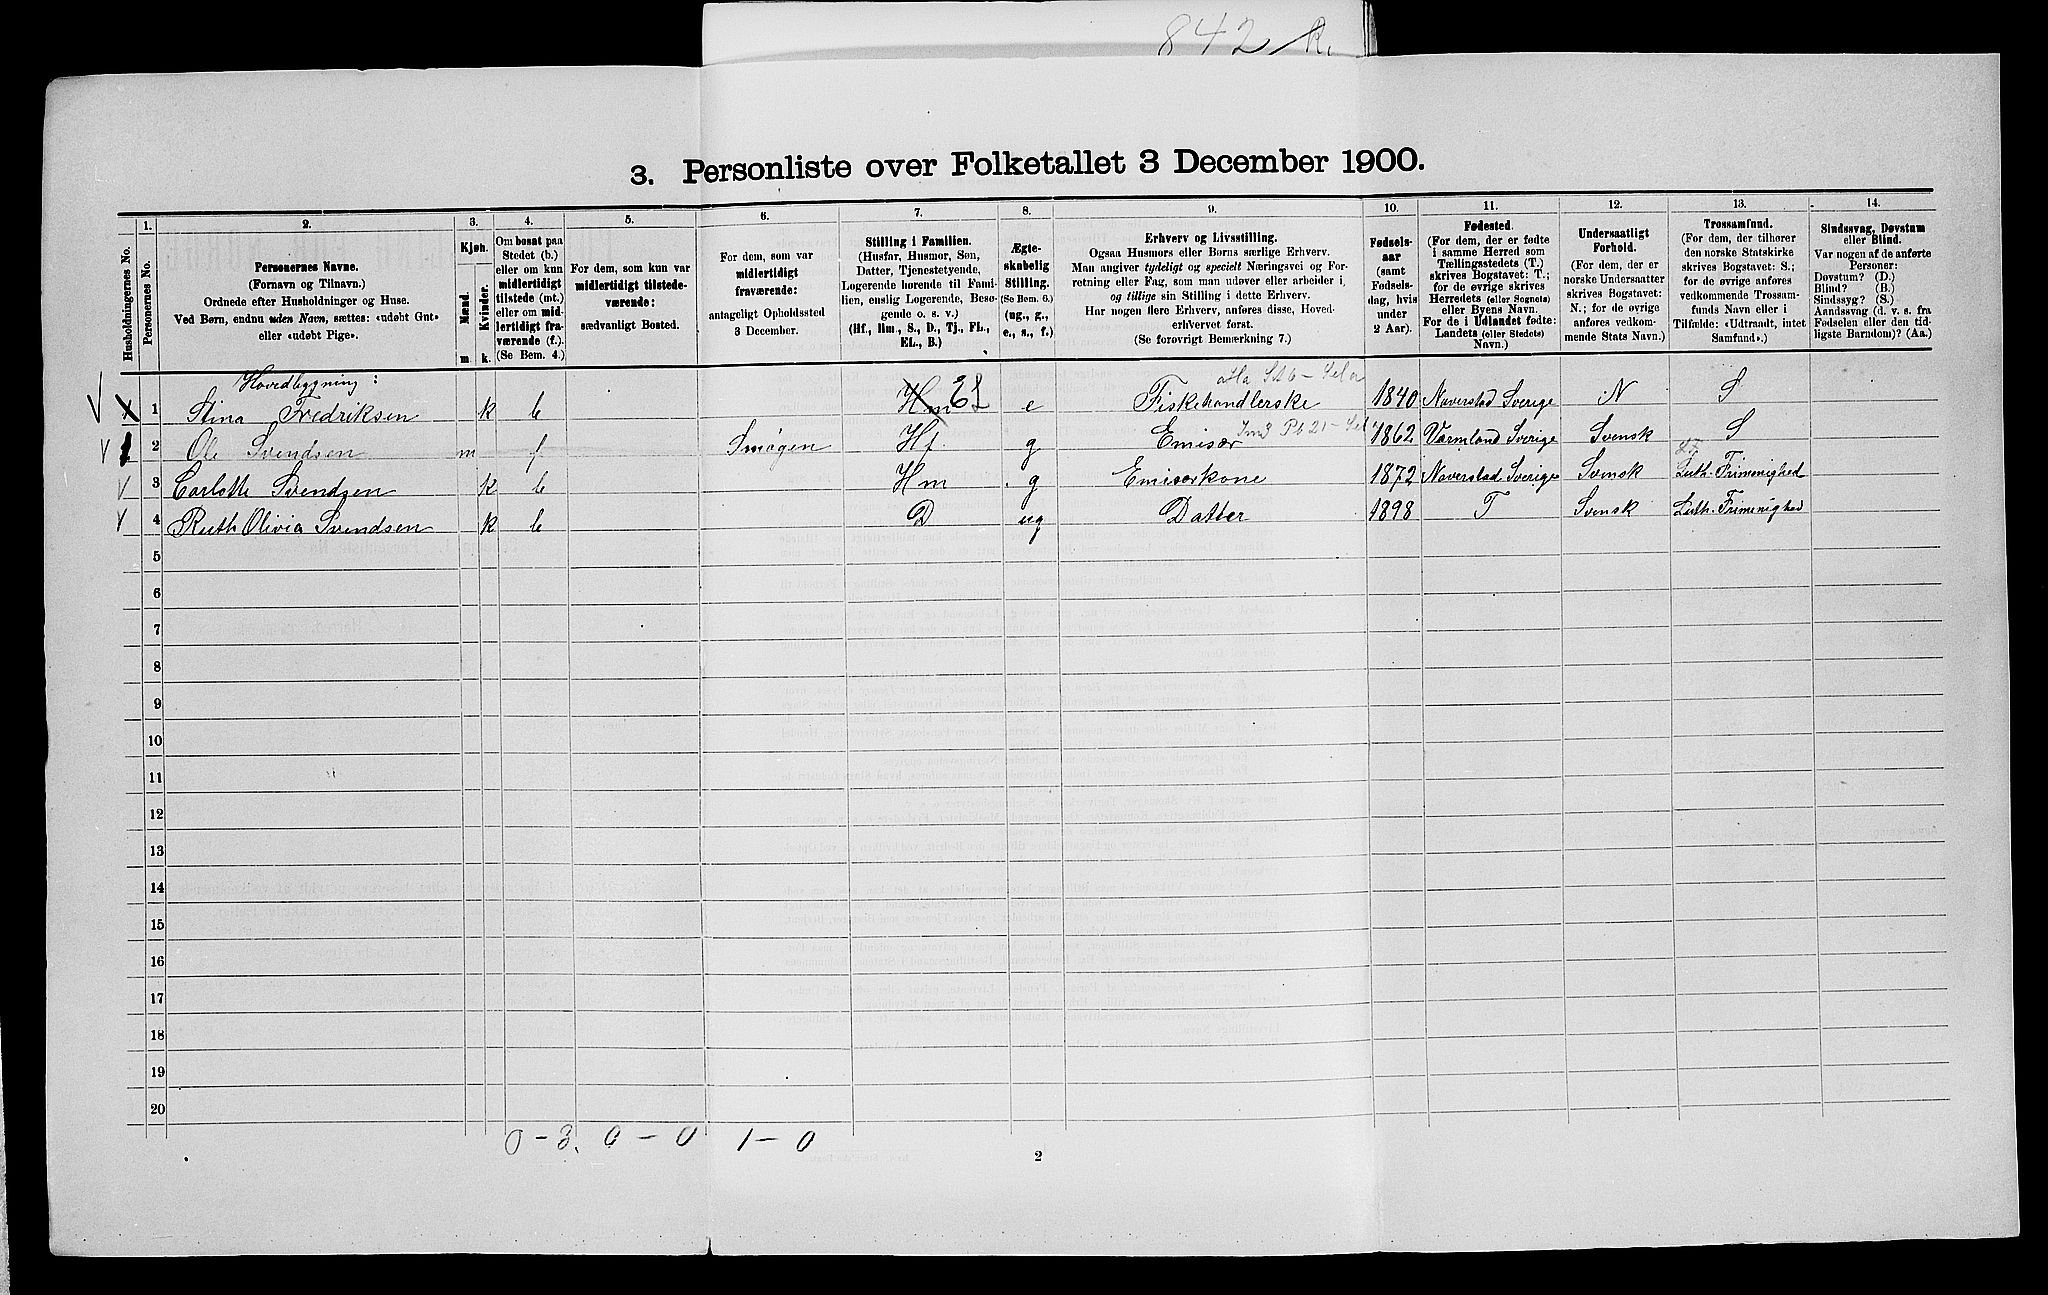 842 R.
3. Personliste over Folketallet 3 December 1900.
Husholdningernes No.
1.
Personernes No.
2.
Personernes Navne.
(Fornavn og Tilnavn.)
Ordnede efter Husholdninger og Huse.
Ved Børn, endnu uden Navn, sættes: «udøbt Gut»
eller «udøbt Pige».
3.
Kjøn.
Mænd.
Kvinder.
m. k.
4.
Om bosat paa
Stedet (b.)
eller om kun
midlertidigt
tilstede (mt.)
eller om mid-
lertidigt fra-
værende (f.).
(Se Bem. 4.)
5.
For dem, som kun var
midlertidigt tilstede-
værende:
sædvanligt Bosted.
6.
For dem, som var
midlertidigt
fraværende:
antageligt Opholdssted
3 December.
7.
Stilling i Familien.
(Husfar, Husmor, Søn,
Datter, Tjenestetyende,
Logerende hørende til Fami-
lien, enslig Logerende, Besø-
gende o. s. v.)
(Hf., Hm., S., D., Tj., FL.,
EL., B.)
8.
Ægte-
skabelig
Stilling.
(Se Bem. 6.)
(ug., g.,
e., s., f.)
9.
Erhverv og Livsstilling.
Ogsaa Husmors eller Børns særlige Erhverv.
Man angiver tydeligt og specielt Næringsvei og For-
retning eller Fag, som man udøver eller arbeider i,
og tillige sin Stilling i dette Erhverv.
Har nogen flere Erhverv, anføres disse, Hoved-
erhvervet først.
(Se forøvrigt Bemærkning 7.)
10.
Fødsels-
aar
(samt
Fødsels-
dag, hvis
under
2 Aar).
11.
Fødested.
(For dem, der er fødte
i samme Herred som
Tællingsstedets (T.)
skrives Bogstavet: T.;
for de øvrige skrives
Herredets (eller Sognets)
eller Byens Navn.
For de i Udlandet fødte:
Landets (eller Stedets)
Navn.)
12.
Undersaatligt
Forhold.
(For dem, der er
norske Undersaatter
skrives Bogstavet:
N.; for de øvrige
anføres vedkom-
mende Stats Navn.)
13.
Trossamfund.
(For dem, der tilhører
den norske Statskirke
skrives Bogstavet: S.;
for de øvrige anføres
vedkommende Trossam-
funds Navn eller i
Tilfælde: «Udtraadt, intet
Samfund».)
14.
Sindssvag, Døvstum
eller Blind.
Var nogen af de anførte
Personer:
Døvstum? (D.)
Blind? (B.)
Sindssyg? (S.)
Aandssvag (d. v. s. fra
Fødselen eller den tid-
ligste Barndom)? (Aa.)
Hovedbygning:
1 Stina Fredriksen k b Hm EL e Fiskehandlerske 1840 Naverstad Sverige N S
2 Ole Svendsen m f Smøgen Hf. g Emisær 1862 Varmland Sverige Svensk S
3 Carlotte Svendsen k b Hm g Emisærkone 1872 Naverstad Sverige Svensk Luth. Frimenighed
4 Ruth Olivia Svendsen k b D ug Datter 1898 T Svensk Luth. Frimenighed
5
6
7
8
9
10
11
12
13
14
15
16
17
18
19
20
0 - 3. 0 - 0 1 - 0
2